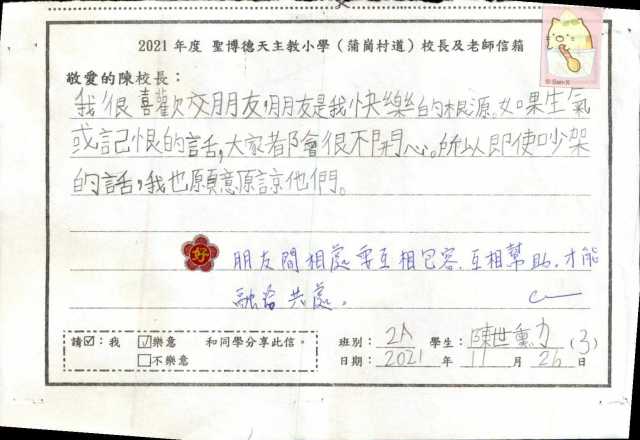 2021 年度 聖博德天主教小學（蒲崗村道）校長及老師信箱
敬愛的陳校長：
我很喜歡交朋友，朋友是我快樂的根源。如果生氣
或記恨的話，大家都會很不開心。所以即使吵架
的話，我也願意原諒他們。
好
朋友間相處要互相包容，互相幫助，才能
融洽共處。
請☑：我 ☑樂意 和同學分享此信。
□不樂意
班別：2A 學生：陳世勳(3)
日期：2021 年 11 月 26 日